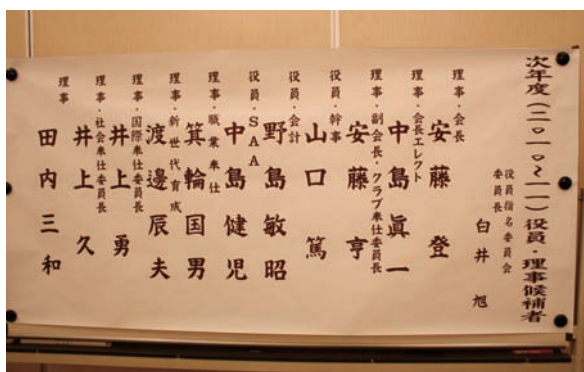 次年度(二〇一〇～一一)役員・理事候補者
役員指名委員会
委員長 臼井 旭
理事・会長
安藤 登
理事・会長エレクト
中島眞一
理事・副会長・クラブ奉仕委員長
安藤 亨
役員・幹事
山口 篤
役員・会計
野島敏昭
役員・SAA
中島健児
理事・職業奉仕
箕輪国男
理事・新世代育成
渡邊辰夫
理事・国際奉仕委員長
井上 勇
理事・社会奉仕委員長
井上 久
理事
田内三和